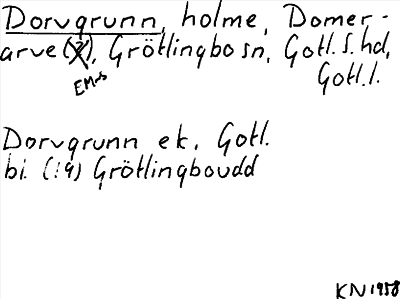 Dorvgrunn, holme, Domer-
arve (?), Grötlingbo sn, Gotl. S. hd,
Gotl. l.
Dorvgrunn ek. Gotl.
bi. (19) Grötlingboudd
KN 1958